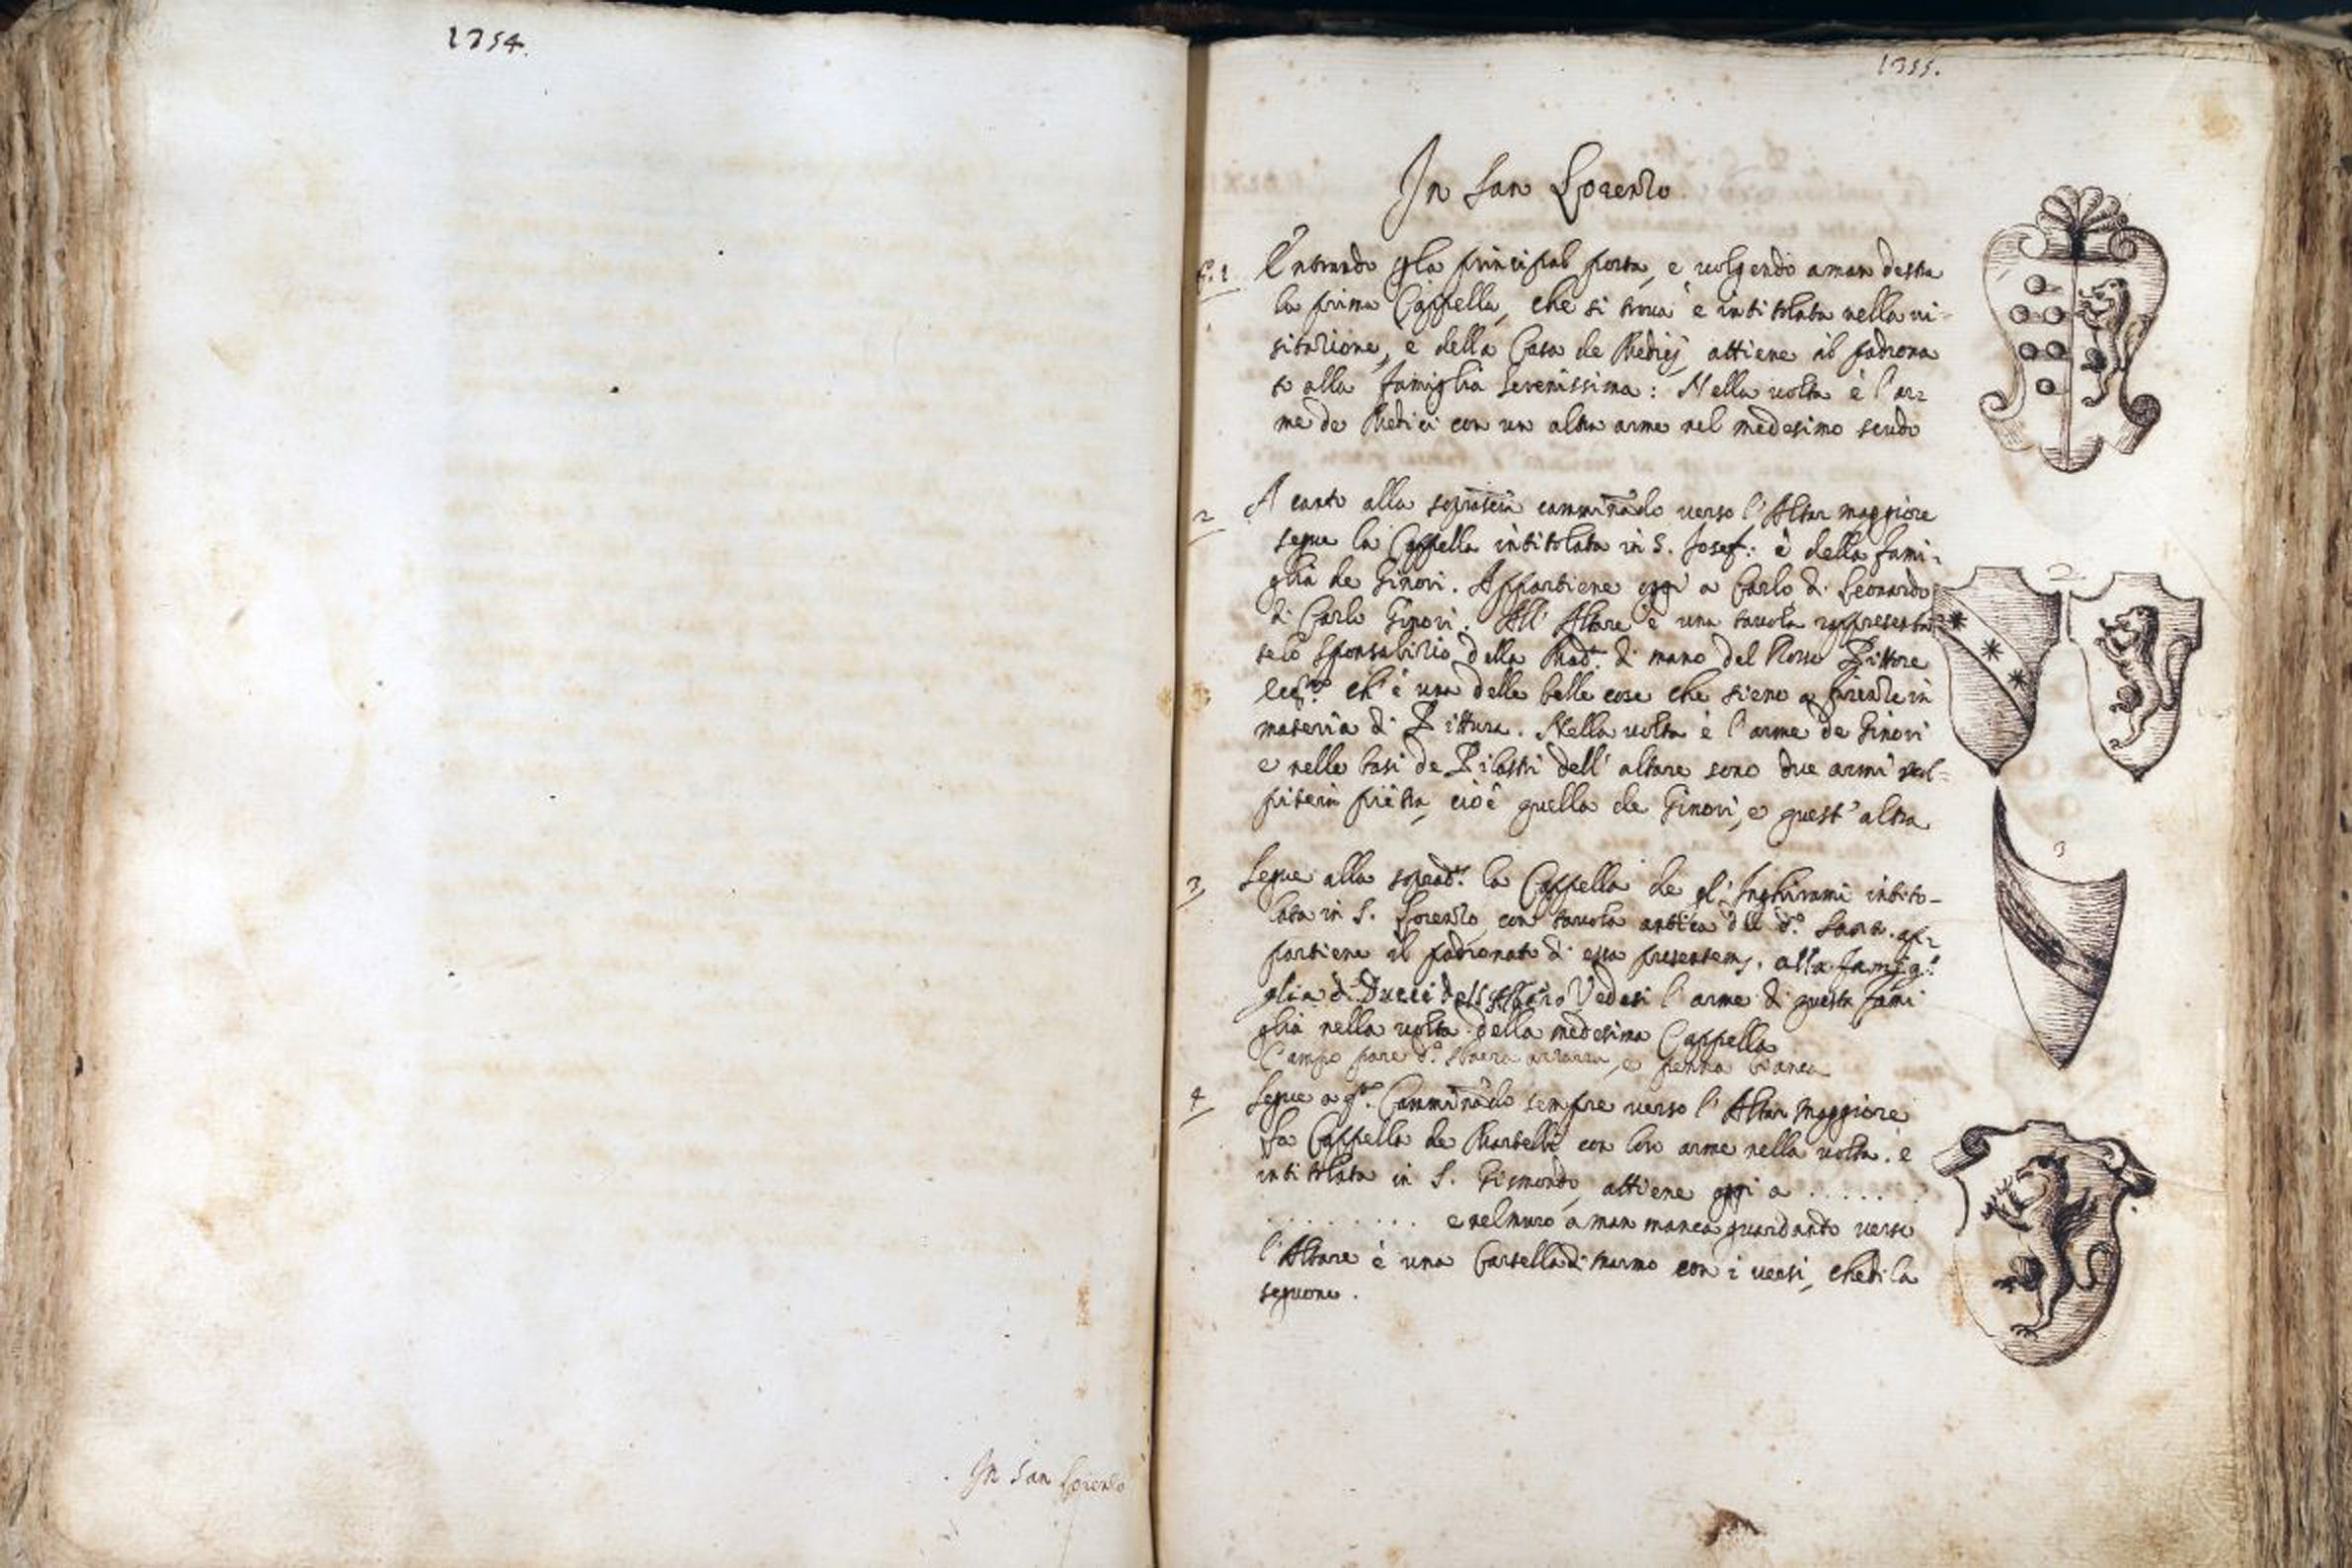 1354.
In San Lorenzo
1355.
In San Lorenzo
1 Entrando p la principal porta, e volgendo a man destra
la prima Cappella, che si trova è intitolata nella vi-
sitazione, e della Casa de Medici attiene il padrona
to alla famiglia Serenissima: Nella volta è l'ar=
me de Medici con un altra arme nel medesimo scudo
2 A canto alla camminado verso l'Altar maggiore
segue la Cappella intitolata in S. Josef: è della fami-
glia de Ginori. Appartiene oggi a Carlo di Leonardo
di Carlo Ginori. All'Altare è una tavola
lo Sponsalizio della Mad.ª di mano del Rosso Pittore
ch'è una delle belle cose che sieno a Firenze in
materia di Pittura. Nella volta è l'arme de Ginori
e nelle basi de Pilastri dell'altare sono due armi scol=
pite in pietra, cioè quella de Ginori, e quest'altra
2
3 Segue alla la Cappella de gl'Inghirami intito-
lata in S. Lorenzo con tavola antica di d.º Santo. ap=
partiene il padronato di essa presentem. alla famig.ª
glia di Ducci Vedesi l'arme di questa fami
glia nella volta della medesima Cappella
Campo pare d.º sbarra azzurra, e bianca
3
4 Segue a q.ª Camminado sempre verso l'Altar Maggiore
la Cappella de Martelli con loro arme nella volta. è
intitolata in S. Gismondo, attiene oggi a . . . . .
. . . . . . . . . e nel muro a man manca guardando verso
l'Altare è una Cartella di marmo con i versi, che di la
seguono.